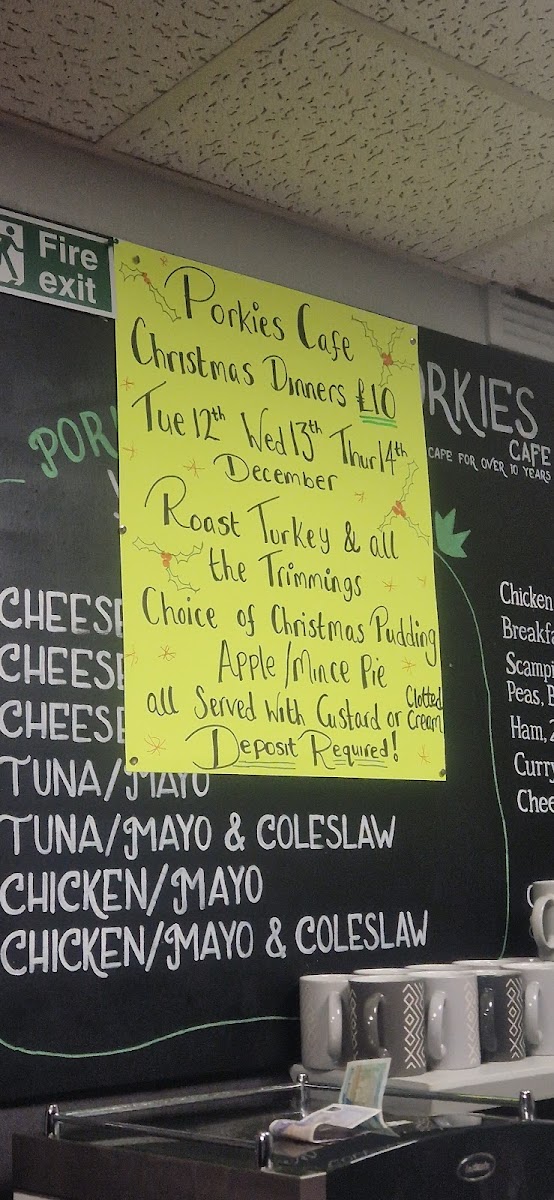 Fire
exit
Porkies Cafe
Christmas Dinners £10
Tue 12th Wed 13th Thur 14th
December
Roast Turkey & all
the Trimmings
Choice of Christmas Pudding
Apple/Mince Pie
all Served with Custard or Clotted Cream
Deposit Required!
POR
RKIES
CAFE
CAFE FOR OVER 10 YEARS
CHEESE
CHEESE
CHEESE
TUNA/MAYO
TUNA/MAYO & COLESLAW
CHICKEN/MAYO
CHICKEN/MAYO & COLESLAW
Chicken
Breakfa
Scampi
Peas, B
Ham, 2
Curry
Chee